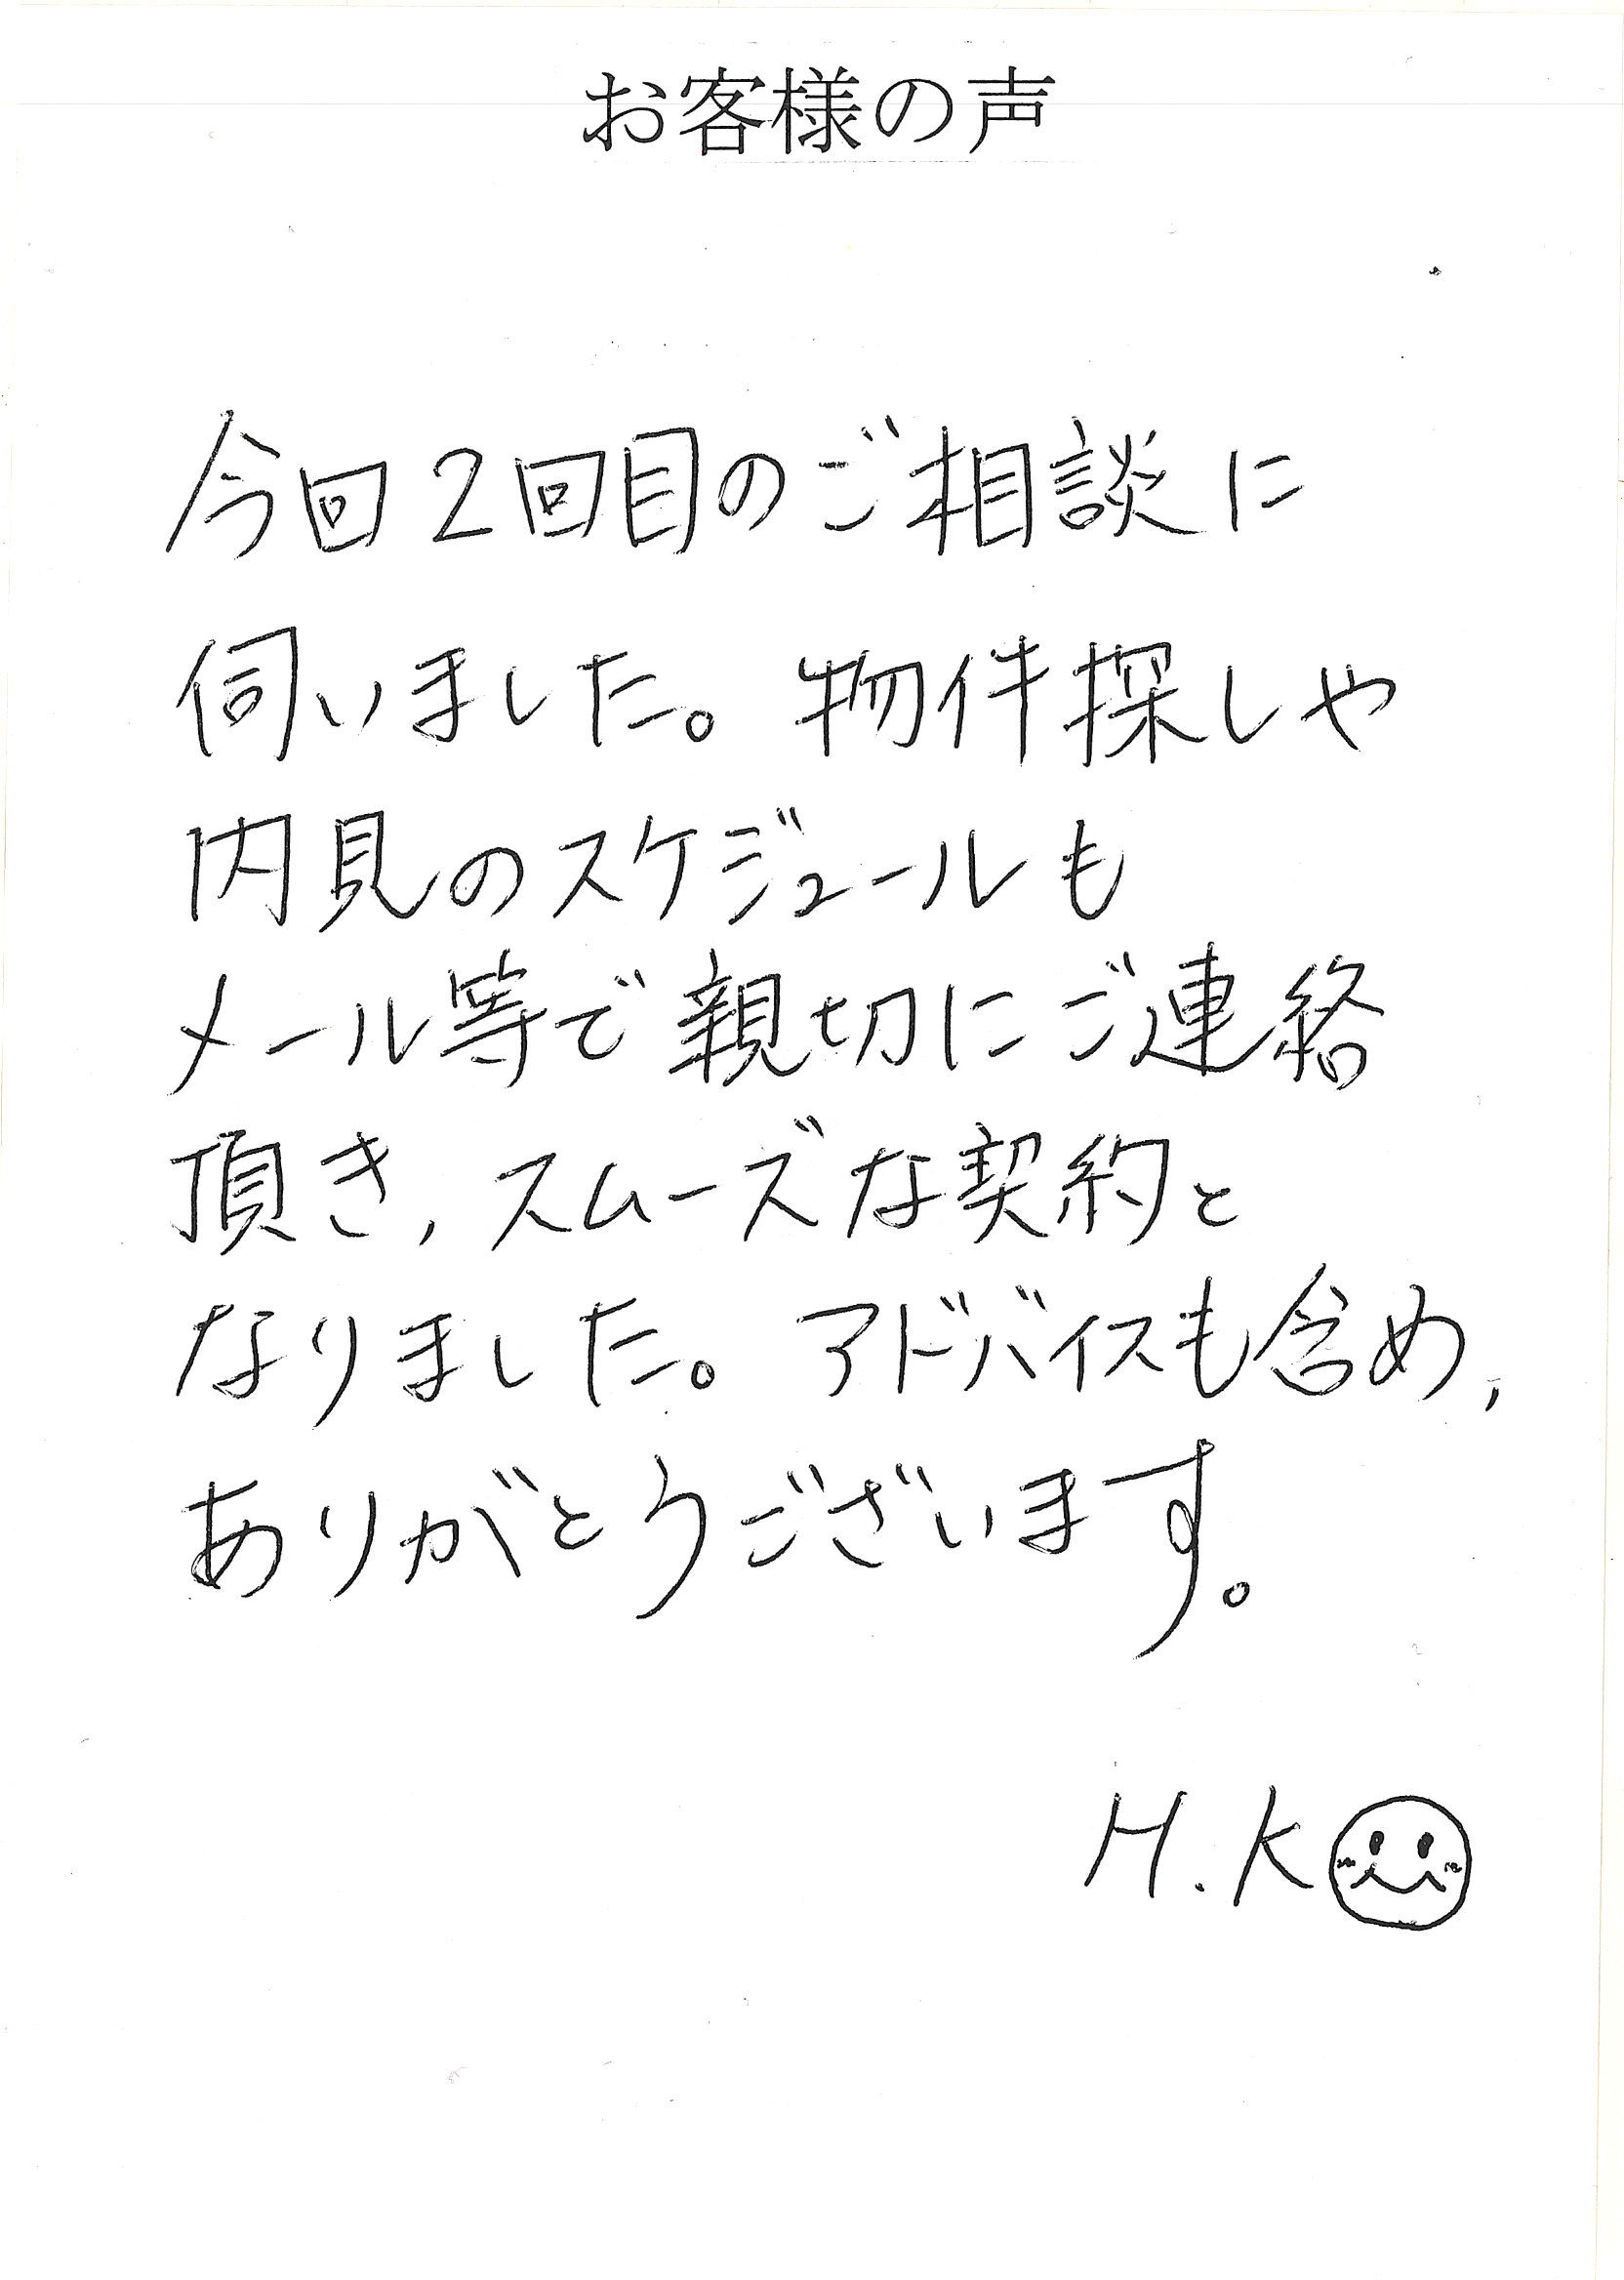 お客様の声
今回2回目のご相談に
伺いました。物件探しや
内見のスケジュールも
メール等で親切にご連絡
頂き,スムーズな契約と
なりました。アドバイスも含め,
ありがとうございます。
H.K